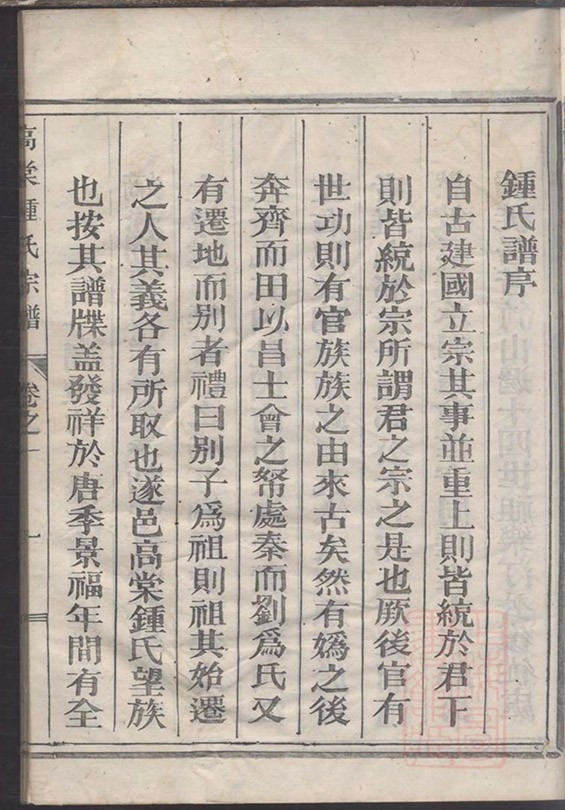 鍾氏譜序
自古建國立宗其事並重上則皆統於君下
則皆統於宗所謂君之宗之是也厥後官有
世功則有官族族之由來古矣然有嬀之後
奔齊而田以昌士會之帑處秦而劉爲氏又
有遷地而别者禮曰别子爲祖則祖其始遷
之人其義各有所取也遂邑高棠鍾氏望族
也按其譜牒盖發祥於唐季景福年間有全
高棠鍾氏宗譜 卷之一 一